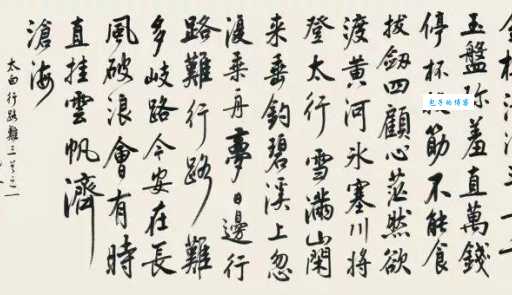 玉盤珎羞直萬錢
停杯投筯不能食
拔劔四顧心茫然欲
渡黄河冰塞川將
登太行雪滿山閑
来垂釣碧溪上忽
復乘舟夢日邊行
路難行路難
多岐路今安在長
風破浪會有時
直挂雲帆濟
滄海
太白行路難三首之一